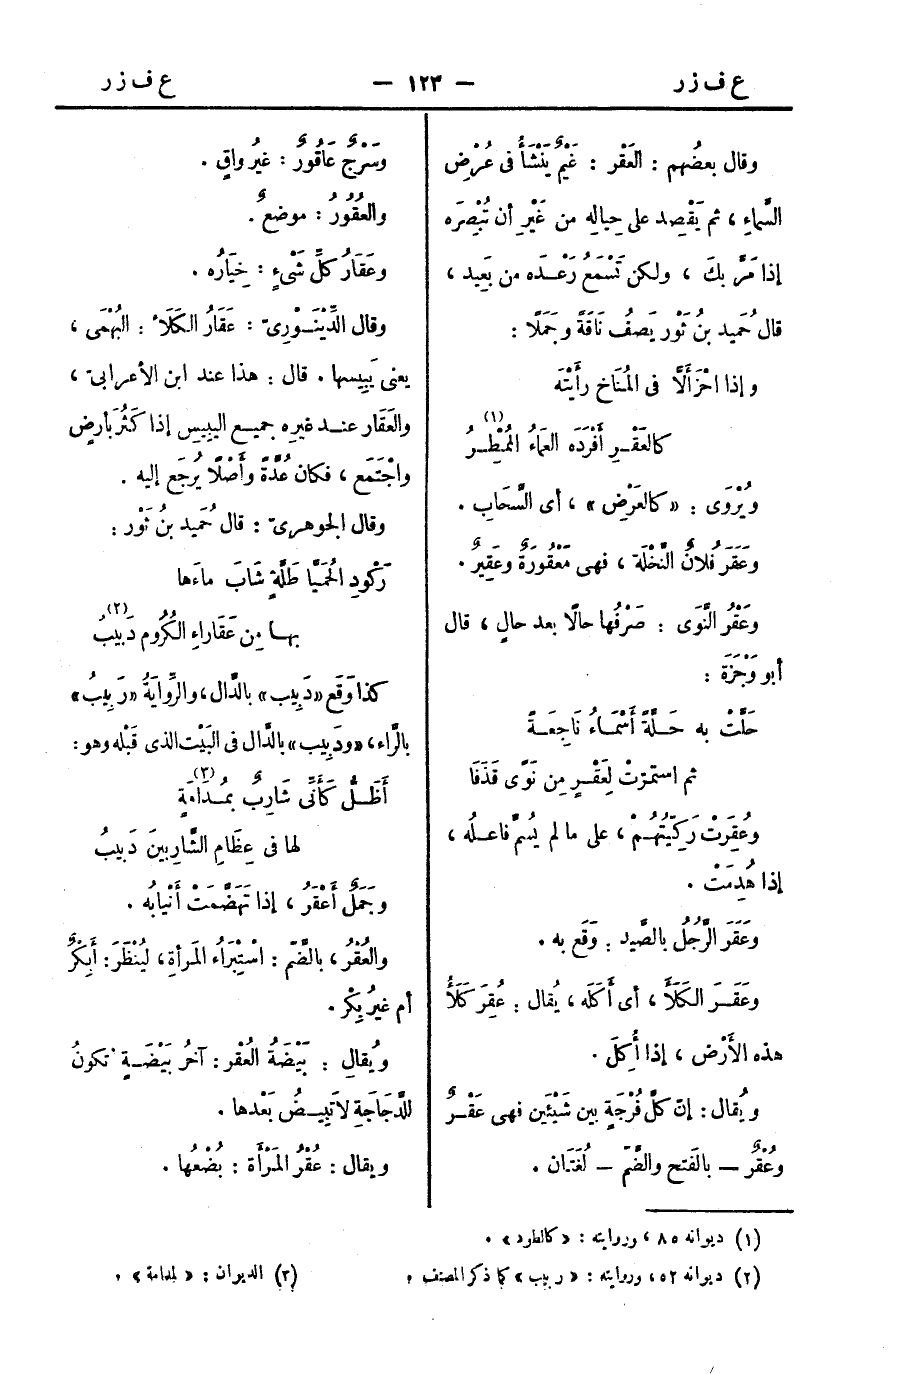 ع ف ز ر — ١٢٣ — ع ف ز ر
وقال بعضُهم : العَقْر : غَيْمٌ يَنْشَأُ فى عُرْضِ
السَّماءِ ، ثم يَقْصِد على حِيالِه من غَيْرِ أن تُبْصِرَه
إذا مَرَّ بكَ ، ولكن تَسْمَعُ رَعْدَه من بَعِيد ،
قال حُمَيد بنُ ثَوْر يَصِفُ نَاقَةً وجَمَلًا :
وإذا احْزَأَلَّا فى المُنَاخِ رأَيْتَه
كالعَقْرِ أَفْرَدَه العَمَاءُ المُمْطِرُ (١)
ويُرْوَى : «كالعَرْضِ» ، أى السَّحَابِ .
وعَقَرَ فُلانٌ النَّخْلَةَ ، فهى مَعْقُورَةٌ وعَقِيرٌ .
وعَقْرُ النَّوَى : صَرْفُها حالًا بعد حالٍ ، قال
أبو وَجْزَةَ :
حَلَّتْ به حَلَّةً أَسْمَاءُ نَاجِعَةً
ثم استمرّتْ لِعَقْرٍ مِن نَوًى قَذَفَا
وعُقِرَتْ رَكِيَّتُهُمْ ، على ما لم يُسَمَّ فاعلُه ،
إذا هُدِمَتْ .
وعَقَر الرَّجُلُ بالصَّيد : وَقَع به .
وعَقَرَ الكَلَأَ ، أى أَكَلَه ، يُقال : عُقِرَ كَلَأُ
هذه الأَرْضِ ، إذا أُكِلَ .
ويُقال : إنّ كلَّ فُرْجَةٍ بين شَيْئَين فهى عَقْرٌ
وعُقْرٌ — بالفَتح والضَّمّ — لُغَتَان .
وسَرْجٌ عَاقُورٌ : غيرُ واقٍ .
والعُقُورُ : موضعٌ .
وعَقَارُ كلِّ شَىْءٍ : خِيَارُه .
وقال الدِّيْنَوَرِىّ : عَقَارُ الكَلَأ : البُهْمَى ،
يعنى يَبِيسها . قال : هذا عند ابن الأعرابىّ ،
والعَقَار عند غيره جميع اليبيس إذا كَثُرَ بأرضٍ
واجْتَمَع ، فكان عُدَّةً وأَصْلًا يُرجَع إليه .
وقال الجوهرىّ : قال حُمَيد بنُ ثَوْر :
رَكُودِ الحُمَيَّا طَلَّةٍ شَابَ ماءَها
بها مِن عَقَاراءِ الكُرُوم دَبِيبُ (٢)
كذا وَقَع «دَبِيب» بالدَّال، والرِّوايَةُ «رَبِيبُ»
بالرَّاء، «ودَبِيب» بالدَّال فى البَيْت الذى قَبْله وهو:
أَظَلُّ كَأَنِّى شَارِبٌ بمُدَامَةٍ (٣)
لها فى عِظَامِ الشَّارِبِينَ دَبِيبُ
وجَمَلٌ أَعْقَرُ ، إذا تَهَضَّمَتْ أَنْيابُه .
والعُقْرُ ، بالضّمّ : اسْتِبْرَاءُ المَرأة، لِيُنْظَرَ: أَبِكْرٌ
أم غيرُ بِكْر .
ويُقال : بَيْضَةُ العُقْر : آخِرُ بَيْضَةٍ تكونُ
للدَّجَاجَةِ لا تَبِيضُ بَعْدها .
ويقال : عُقْرُ المَرْأَة : بُضْعُها .
(١) ديوانه ٨٥ ، وروايته : «كالطود» .
(٢) ديوانه ٥٢، وروايته : «ربيب» كما ذكر المصنف . (٣) الديوان : «لمدامة» .